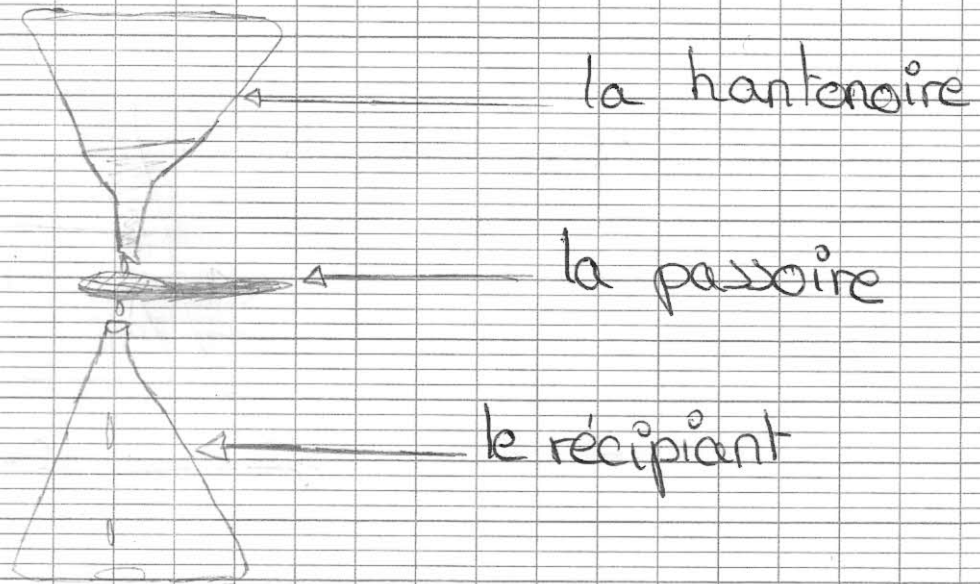 la hantonoire
la passoire
le récipiant